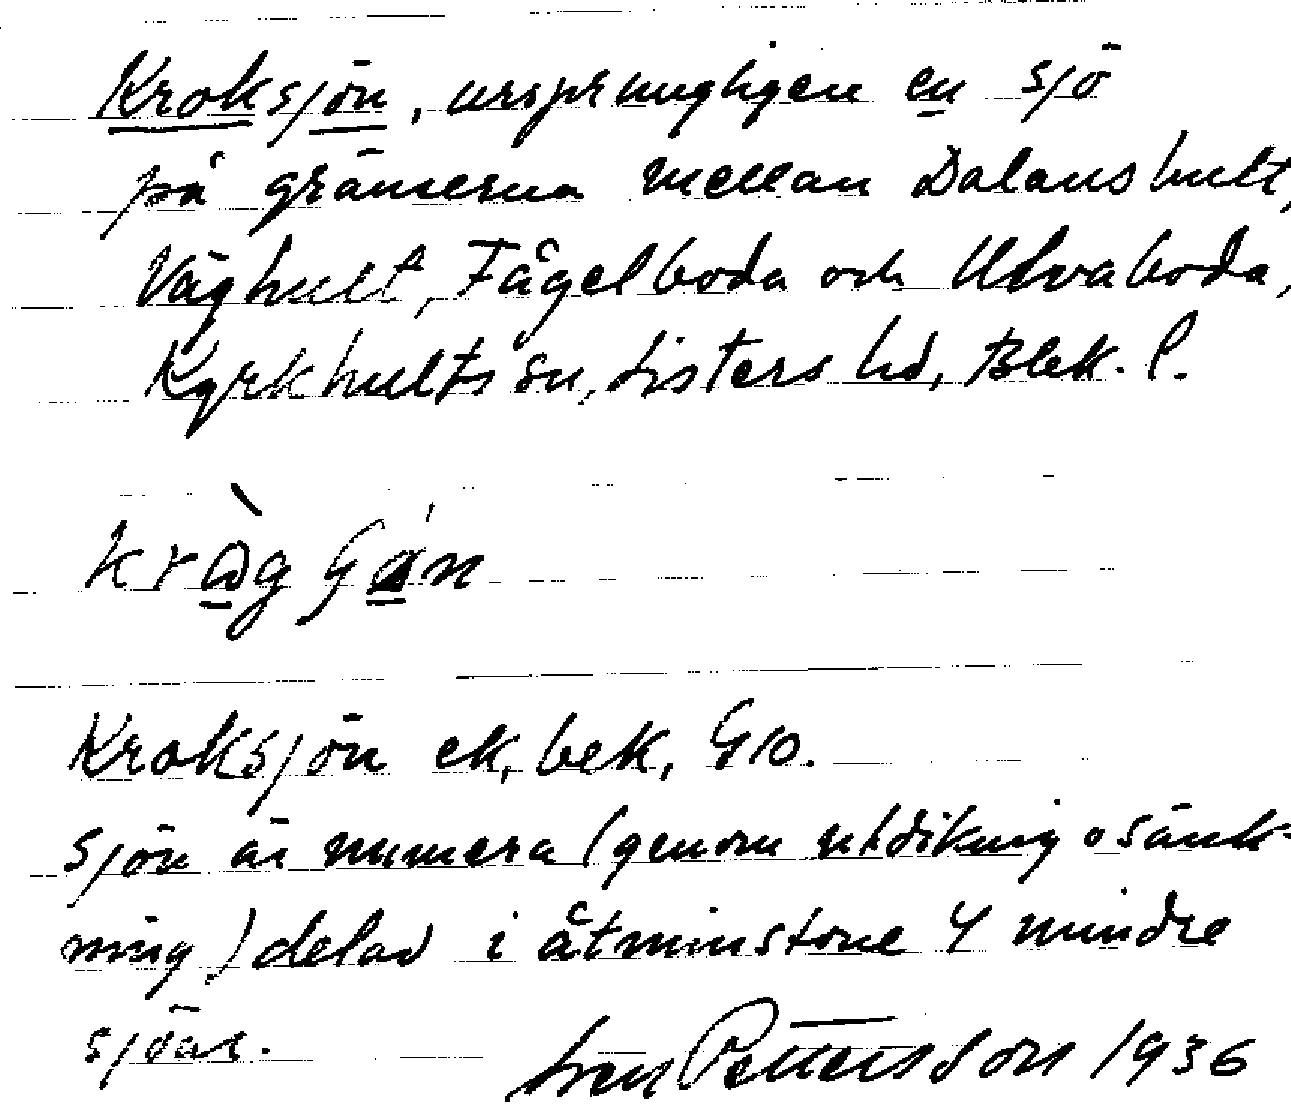 Kroksjön, ursprungligen en sjö
på gränserna mellan Dalanshult,
Våghult, Fågelboda och Ulvaboda,
Kyrkhults sn, Listers hd, Blek. l.
Kroksjön ek, bek, G10.
Sjön är numera (genom utdikning o sänk-
ning) delad i åtminstone 4 mindre
sjöar.
Sven Pettersson 1936